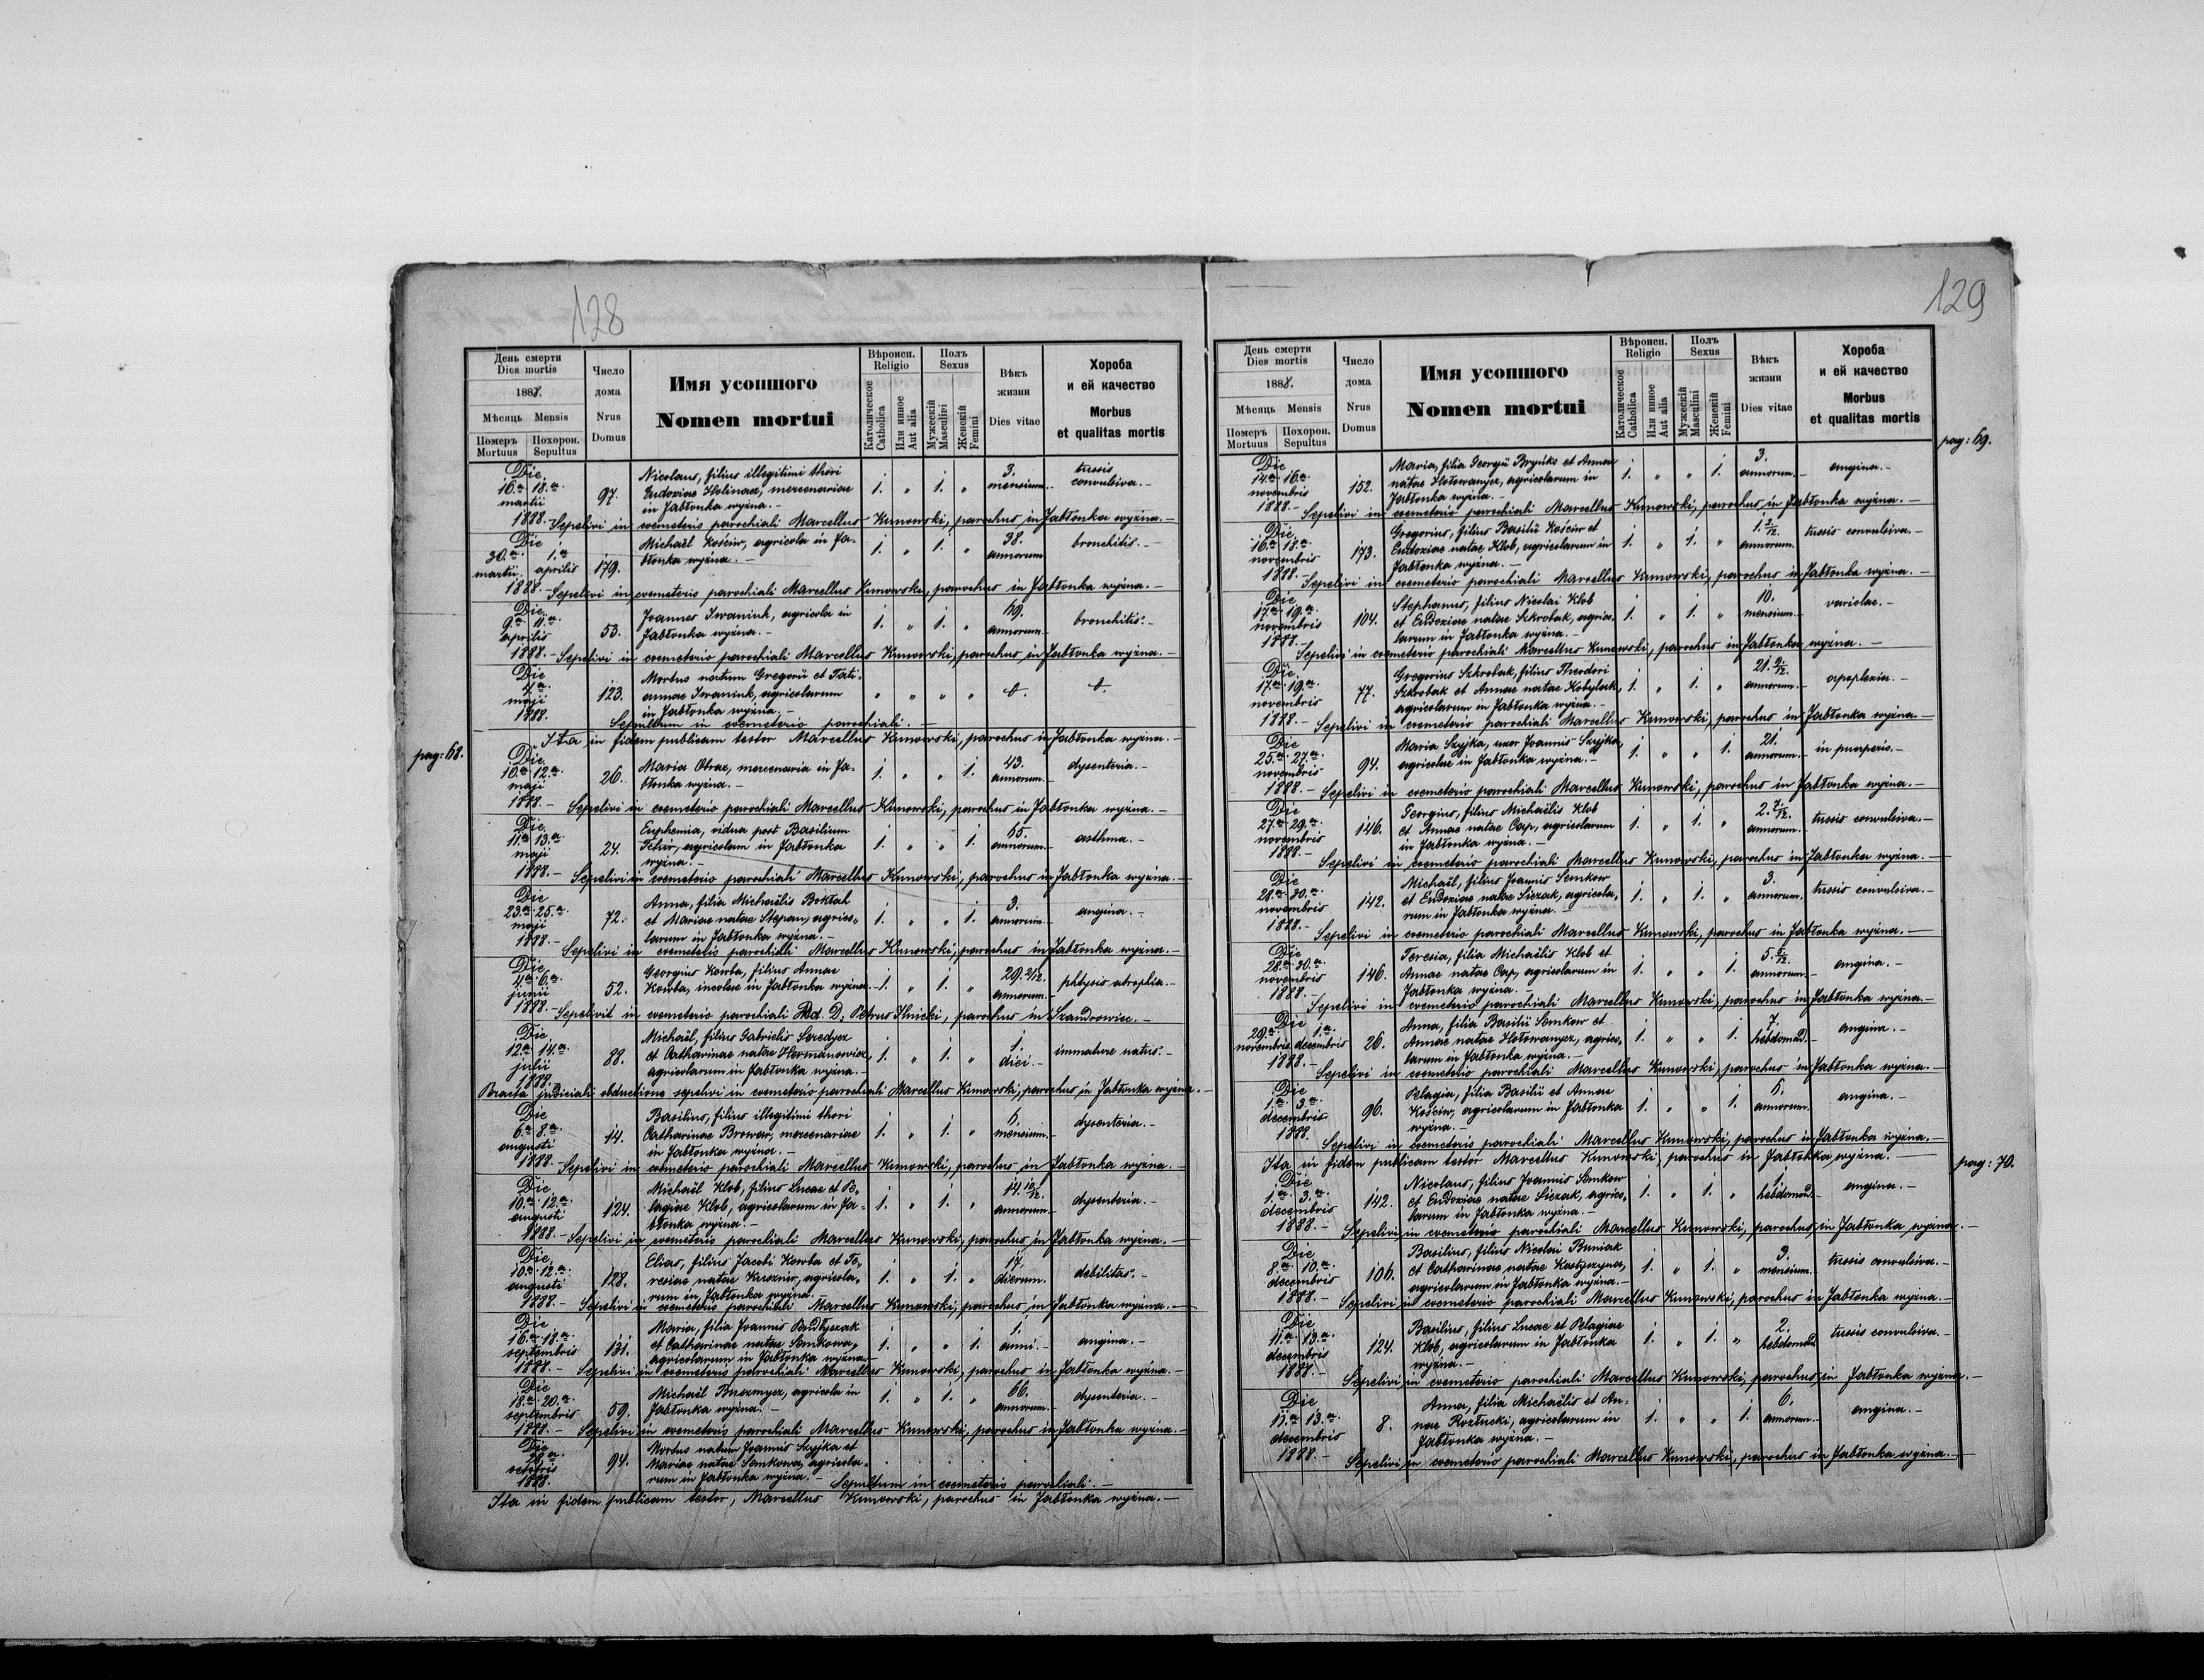 128
День смерти
Dies mortis
1888.
Мѣсяць Mensis
Померъ Похорон.
Mortuus Sepultus
Число
дома
Nrus
Domus
Имя усопшого
Nomen mortui
Вѣроисп.
Religio
Католическое
Catholica
Или инное
Aut alia
Полъ
Sexus
Мужескій
Masculini
Женскій
Femini
Вѣкъ
жизни
Dies vitae
Хороба
и ей качество
Morbus
et qualitas mortis
Die 16.a 18.a martii 1888. 97. Nicolaus, filius illegitimi thori 1. „ 1. „ 3. mensium. tussis convulsiva.
Eudoxiae Holinac, mercenariae
in Jabłonka wyżna.
Sepelivi in coemeterio parochiali Marcellus Kunowski, parochus in Jabłonka wyżna.
Die 30.a martii. 1.a aprilis 1888. 179. Michaël Kościw, agricola in Ja- 1. „ 1. „ 38. annorum bronchitis.
błonka wyżna.
Sepelivi in coemeterio parochiali Marcellus Kunowski, parochus in Jabłonka wyżna.
Die 9.a 11.a aprilis 1888. 53. Joannes Iwaniuk, agricola in 1. „ 1. „ 69. annorum. bronchitis.
Jabłonka wyżna.
Sepelivi in coemeterio parochiali Marcellus Kunowski, parochus in Jabłonka wyżna.
Die 4.a maji 1888. 123. Mortus natum Gregorii et Tati- „ „ „ „
annae Iwaniuk, agricolarum
in Jabłonka wyżna.
Sepultum in coemeterio parochiali.
Ita in fidem publicam testor Marcellus Kunowski, parochus in Jabłonka wyżna.
pag: 68.
Die 10.a 12.a maji 1888. 26. Maria Obraz, mercenaria in Ja- 1. „ „ 1. 43. annorum. dysenteria.
błonka wyżna.
Sepelivi in coemeterio parochiali Marcellus Kunowski, parochus in Jabłonka wyżna.
Die 11.a 13.a maji 1888. 24. Euphemia, vidua post Basilium 1. „ „ 1. 65. annorum. asthma.
Fehir, agricolam in Jabłonka
wyżna.
Sepelivi in coemeterio parochiali Marcellus Kunowski, parochus in Jabłonka wyżna.
Die 23.a 25.a maji 1888. 72. Anna, filia Michaëlis Boktah 1. „ „ 1. 3. annorum. angina.
et Mariae natae Stepan, agrico-
larum in Jabłonka wyżna.
Sepelivi in coemeterio parochiali Marcellus Kunowski, parochus in Jabłonka wyżna.
Die 4.a 6.a junii 1888. 52. Georgius Kowba, filius Annae 1. „ 1. „ 29. 2/12. annorum. phtysis atrophia.
Kowba, incolae in Jabłonka wyżna.
Sepelivit in coemeterio parochiali Rd. D. Petrus Ilnicki, parochus in Szandrowiec.
Die 12.a 14.a julii 1888. 88. Michaël, filius Gabrielis Seredycz 1. „ 1. „ 1. diei. immature natus.
et Catharinae natae Hermanowicz,
agricolarum in Jabłonka wyżna.
Peracta judiciali obductione sepelivi in coemeterio parochiali Marcellus Kunowski, parochus in Jabłonka wyżna.
Die 6.a 8.a augusti 1888. 14. Basilius, filius illegitimi thori 1. „ 1. „ 6. mensium. dysenteria.
Catharinae Browar, mercenariae
in Jabłonka wyżna.
Sepelivi in coemeterio parochiali Marcellus Kunowski, parochus in Jabłonka wyżna.
Die 10.a 12.a augusti 1888. 124. Michaël Klob, filius Lucae et Pe- 1. „ 1. „ 14. 10/12. annorum. dysenteria.
lagiae Klob, agricolarum in Ja-
błonka wyżna.
Sepelivi in coemeterio parochiali Marcellus Kunowski, parochus in Jabłonka wyżna.
Die 10.a 12.a augusti 1888. 128. Elias, filius Jacobi Kowba et Te- 1. „ 1. „ 17. dierum. debilitas.
resiae natae Kusznir, agricola-
rum in Jabłonka wyżna.
Sepelivi in coemeterio parochiali Marcellus Kunowski, parochus in Jabłonka wyżna.
Die 16.a 18.a septembris 1888. 131. Maria, filia Joannis 1. „ „ 1. 1. anni. angina.
et Catharinae natae Semkowa,
agricolarum in Jabłonka wyżna.
Sepelivi in coemeterio parochiali Marcellus Kunowski, parochus in Jabłonka wyżna.
Die 18.a 20.a septembris 1888. 59. Michaël Buszmycz, agricola in 1. „ 1. „ 66. annorum. dysenteria.
Jabłonka wyżna.
Sepelivi in coemeterio parochiali Marcellus Kunowski, parochus in Jabłonka wyżna.
Die octobris 1888. 94. Mortus natum Joannis Szyjka et
Mariae natae Semkowa, agricola-
rum in Jabłonka wyżna.
Sepultum in coemeterio parochiali.
Ita in fidem publicam testor, Marcellus Kunowski, parochus in Jabłonka wyżna.
129
День смерти
Dies mortis
1888.
Мѣсяць Mensis
Померъ Похорон.
Mortuus Sepultus
Число
дома
Nrus
Domus
Имя усопшого
Nomen mortui
Вѣроисп.
Religio
Католическое
Catholica
Или инное
Aut alia
Полъ
Sexus
Мужескій
Masculini
Женскій
Femini
Вѣкъ
жизни
Dies vitae
Хороба
и ей качество
Morbus
et qualitas mortis
pag: 69.
Die 14.a 16.a novembris 1888. 152. Maria, filia Georgii Bryńko et Annae 1. „ „ 1. 3. annorum. angina.
natae Hotowanycz, agricolarum in
Jabłonka wyżna.
Sepelivi in coemeterio parochiali Marcellus Kunowski, parochus in Jabłonka wyżna.
Die 16.a 18.a novembris 1888. 173. Gregorius, filius Basilii Kościw et 1. „ 1. „ 1. 2/12. annorum. tussis convulsiva.
Eudoxiae natae Klob, agricolarum in
Jabłonka wyżna.
Sepelivi in coemeterio parochiali Marcellus Kunowski, parochus in Jabłonka wyżna.
Die 17.a 19.a novembris 1888. 104. Stephanus, filius Nicolai Klob 1. „ 1. „ 10. mensium. variolae.
et Eudoxiae natae Szkrobak, agrico-
larum in Jabłonka wyżna.
Sepelivi in coemeterio parochiali Marcellus Kunowski, parochus in Jabłonka wyżna.
Die 17.a 19.a novembris 1888. 77. Gregorius Szkrobak, filius Theodori 1. „ 1. „ 21. 9/12. annorum. apoplexia.
Szkrobak et Annae natae Kobylak,
agricolarum in Jabłonka wyżna.
Sepelivi in coemeterio parochiali Marcellus Kunowski, parochus in Jabłonka wyżna.
Die 25.a 27.a novembris 1888. 94. Maria Szyjka, uxor Joannis Szyjka, 1. „ „ 1. 21. annorum. in puerperio.
agricolae in Jabłonka wyżna.
Sepelivi in coemeterio parochiali Marcellus Kunowski, parochus in Jabłonka wyżna.
Die 27.a 29.a novembris 1888. 146. Georgius, filius Michaëlis Klob 1. „ 1. „ 2. 7/12. annorum. tussis convulsiva.
et Annae natae Cap, agricolarum
in Jabłonka wyżna.
Sepelivi in coemeterio parochiali Marcellus Kunowski, parochus in Jabłonka wyżna.
Die 28.a 30.a novembris 1888. 142. Michaël, filius Joannis Semkow 1. „ 1. „ 3. annorum. tussis convulsiva.
et Eudoxiae natae Siczak, agricola-
rum in Jabłonka wyżna.
Sepelivi in coemeterio parochiali Marcellus Kunowski, parochus in Jabłonka wyżna.
Die 28.a 30.a novembris 1888. 146. Teresia, filia Michaëlis Klob et 1. „ „ 1. 5. 5/12. annorum. angina.
Annae natae Cap, agricolarum in
Jabłonka wyżna.
Sepelivi in coemeterio parochiali Marcellus Kunowski, parochus in Jabłonka wyżna.
Die 29.a novembris 1.a decembris 1888. 26. Anna, filia Basilii Semkow et 1. „ „ 1. 7. hebdomad. angina.
Annae natae Hotowanycz, agrico-
larum in Jabłonka wyżna.
Sepelivi in coemeterio parochiali Marcellus Kunowski, parochus in Jabłonka wyżna.
Die 1.a 3.a decembris 1888. 96. Pelagia, filia Basilii et Annae 1. „ „ 1. 6. annorum. angina.
Kościw, agricolarum in Jabłonka
wyżna.
Sepelivi in coemeterio parochiali Marcellus Kunowski, parochus in Jabłonka wyżna.
Ita in fidem publicam testor Marcellus Kunowski, parochus in Jabłonka wyżna.
pag: 70.
Die 1.a 3.a decembris 1888. 142. Nicolaus, filius Joannis Semkow 1. „ 1. „ 1. hebdomad. angina.
et Eudoxiae natae Siczak, agrico-
larum in Jabłonka wyżna.
Sepelivi in coemeterio parochiali Marcellus Kunowski, parochus in Jabłonka wyżna.
Die 8.a 10.a decembris 1888. 106. Basilius, filius Nicolai Buniak 1. „ 1. „ 9. mensium. tussis convulsiva.
et Catharinae natae Kostyszyna,
agricolarum in Jabłonka wyżna.
Sepelivi in coemeterio parochiali Marcellus Kunowski, parochus in Jabłonka wyżna.
Die 11.a 13.a decembris 1888. 124. Basilius, filius Lucae et Pelagiae 1. „ 1. „ 2. hebdomad. tussis convulsiva.
Klob, agricolarum in Jabłonka
wyżna.
Sepelivi in coemeterio parochiali Marcellus Kunowski, parochus in Jabłonka wyżna.
Die 11.a 13.a decembris 1888. 8. Anna, filia Michaëlis et An- 1. „ „ 1. 6. annorum. angina.
nae Rozłucki, agricolarum in
Jabłonka wyżna.
Sepelivi in coemeterio parochiali Marcellus Kunowski, parochus in Jabłonka wyżna.